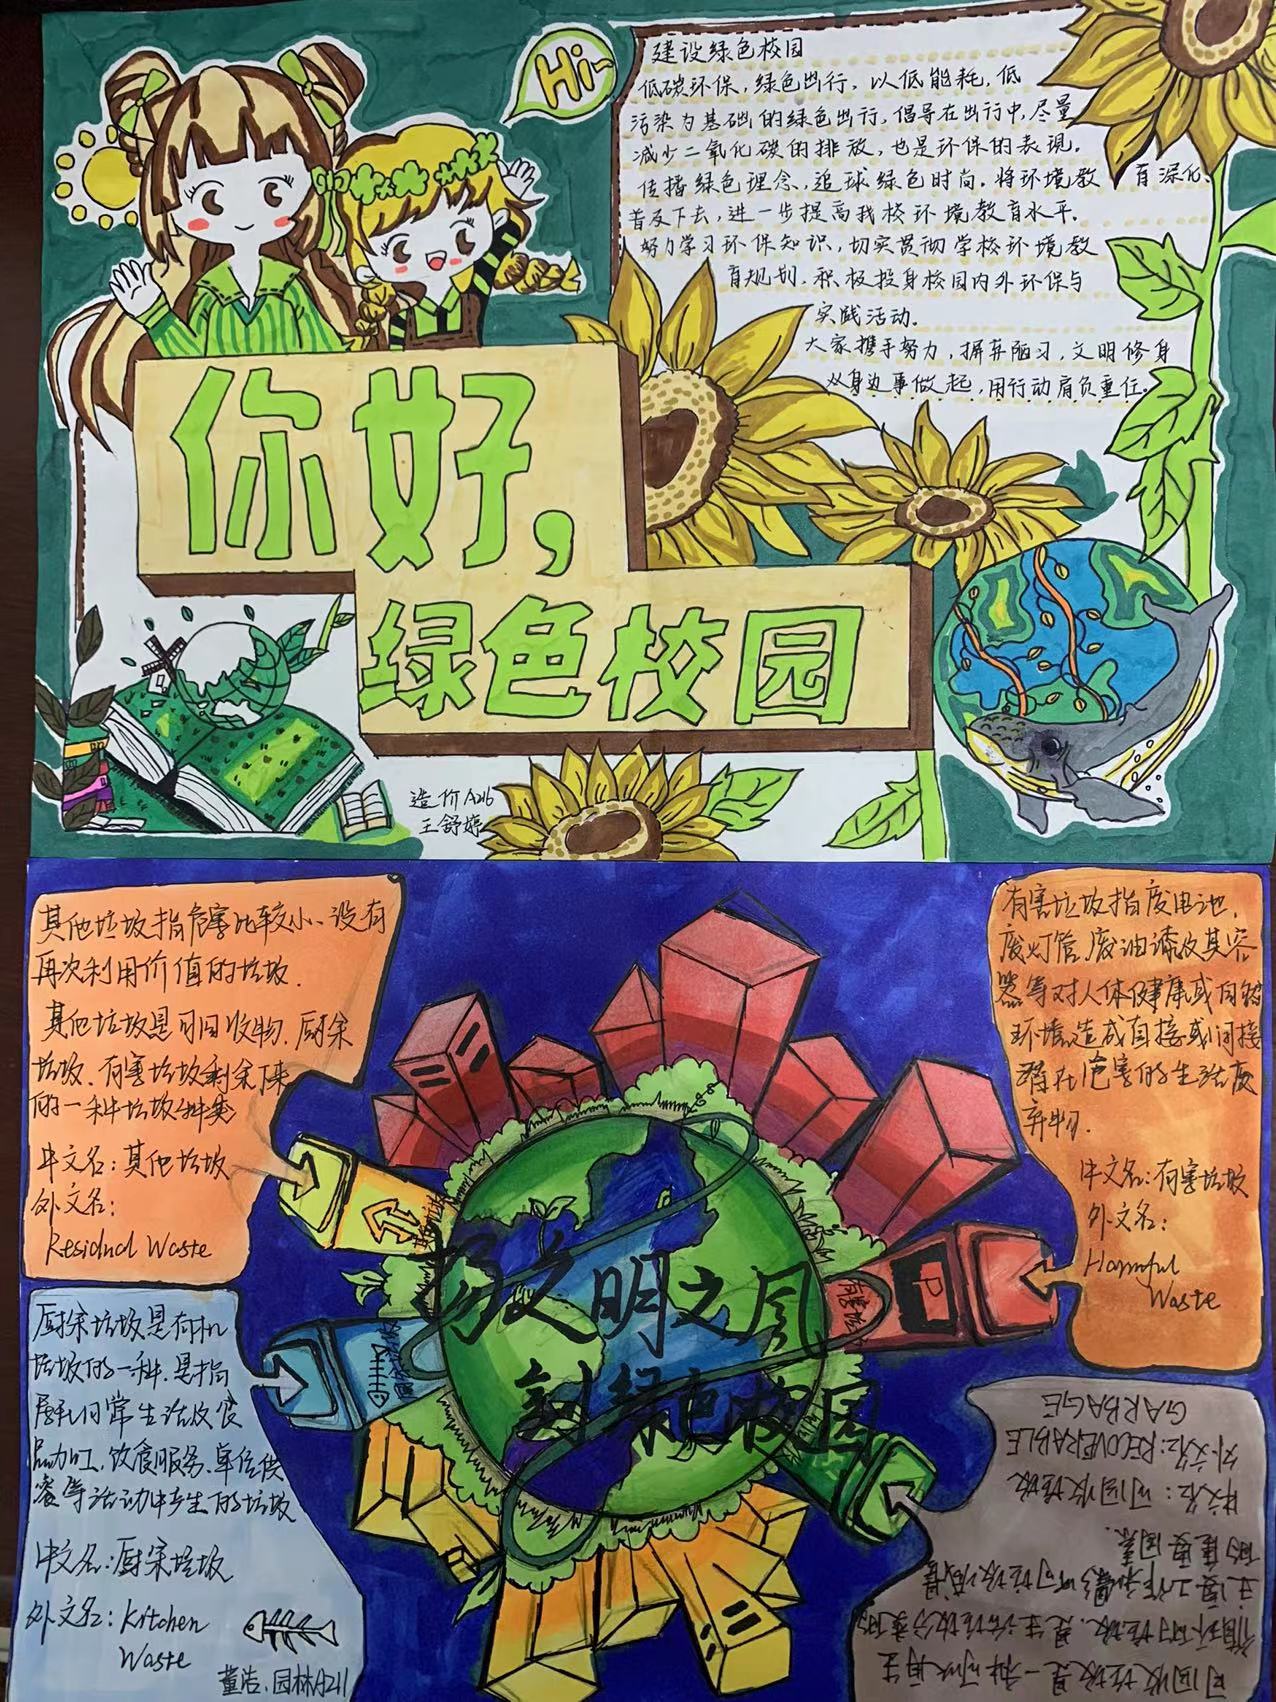 Hi~
建设绿色校园
低碳环保,绿色出行,以低能耗,低
污染为基础的绿色出行,倡导在出行中,尽量
减少二氧化碳的排放,也是环保的表现。
传播绿色理念,追球绿色时尚。将环境教育深化、
普及下去,进一步提高我校环境教育水平。
努力学习环保知识,切实贯彻学校环境教
育规划,积极投身校园内外环保与
实践活动。
大家携手努力,摒弃陋习,文明修身
从身边事做起,用行动肩负重任。
你好,
绿色校园
造价A216
王舒婷
其他垃圾指危害比较小、没有
再次利用价值的垃圾.
其他垃圾是可回收物、厨余
垃圾、有害垃圾剩余下来
的一种垃圾种类
中文名:其他垃圾
外文名:
Residual Waste
有害垃圾指废电池、
废灯管、废油漆及其容
器等对人体健康或自然
环境造成直接或间接
潜在危害的生活废
弃物.
中文名:有害垃圾
外文名:
Harmful
Waste
扬文明之风
创绿色校园
有害垃圾
厨余垃圾是有机
垃圾的一种.是指
居民日常生活及食
品加工、饮食服务、单位供
餐等活动中产生的垃圾
中文名:厨余垃圾
外文名:Kritchen
Waste
董浩.园林A211
可回收垃圾是一种可以再生
循环的垃圾、是生活垃圾分类的
主要工作和影响垃圾减量
的重要因素.
中文名:可回收垃圾
外文名:RECOVERABLE
GARBAGE